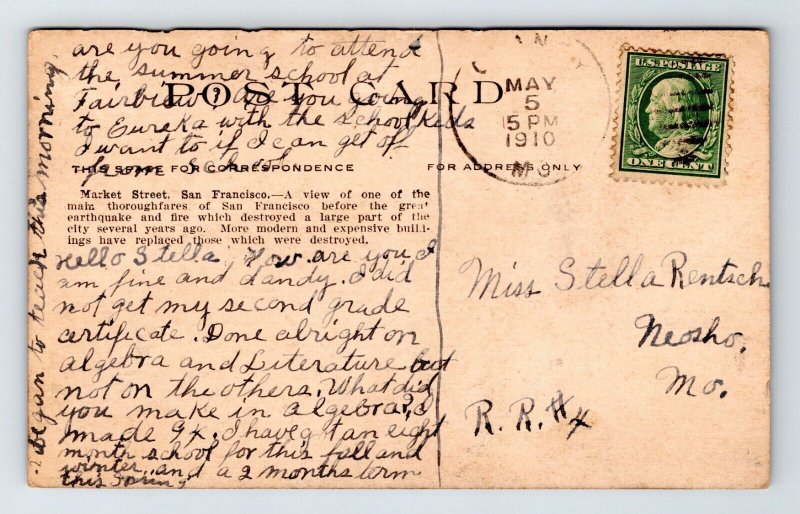 are you going to attend
the summer school at
Fairview? Are you going
to Eureka with the School Kids
I want to if I can get off
from School
POST CARD
THIS SPACE FOR CORRESPONDENCE
FOR ADDRESS ONLY
Market Street, San Francisco.—A view of one of the
main thoroughfares of San Francisco before the great
earthquake and fire which destroyed a large part of the
city several years ago. More modern and expensive build-
ings have replaced those which were destroyed.
Hello Stella, How are you I
am fine and dandy. I did
not get my second grade
certificate. Done alright on
algebra and Literature but
not on the others. What did
you make in algebra? I
made 94. I have got an eight
month school for this fall and
winter and a 2 months term
this Spring
began to teach this morning.
MAY
5
5 PM
1910
MO
U.S. POSTAGE
ONE CENT
Miss Stella Rentsch
Neosho,
Mo.
R. R. # 4